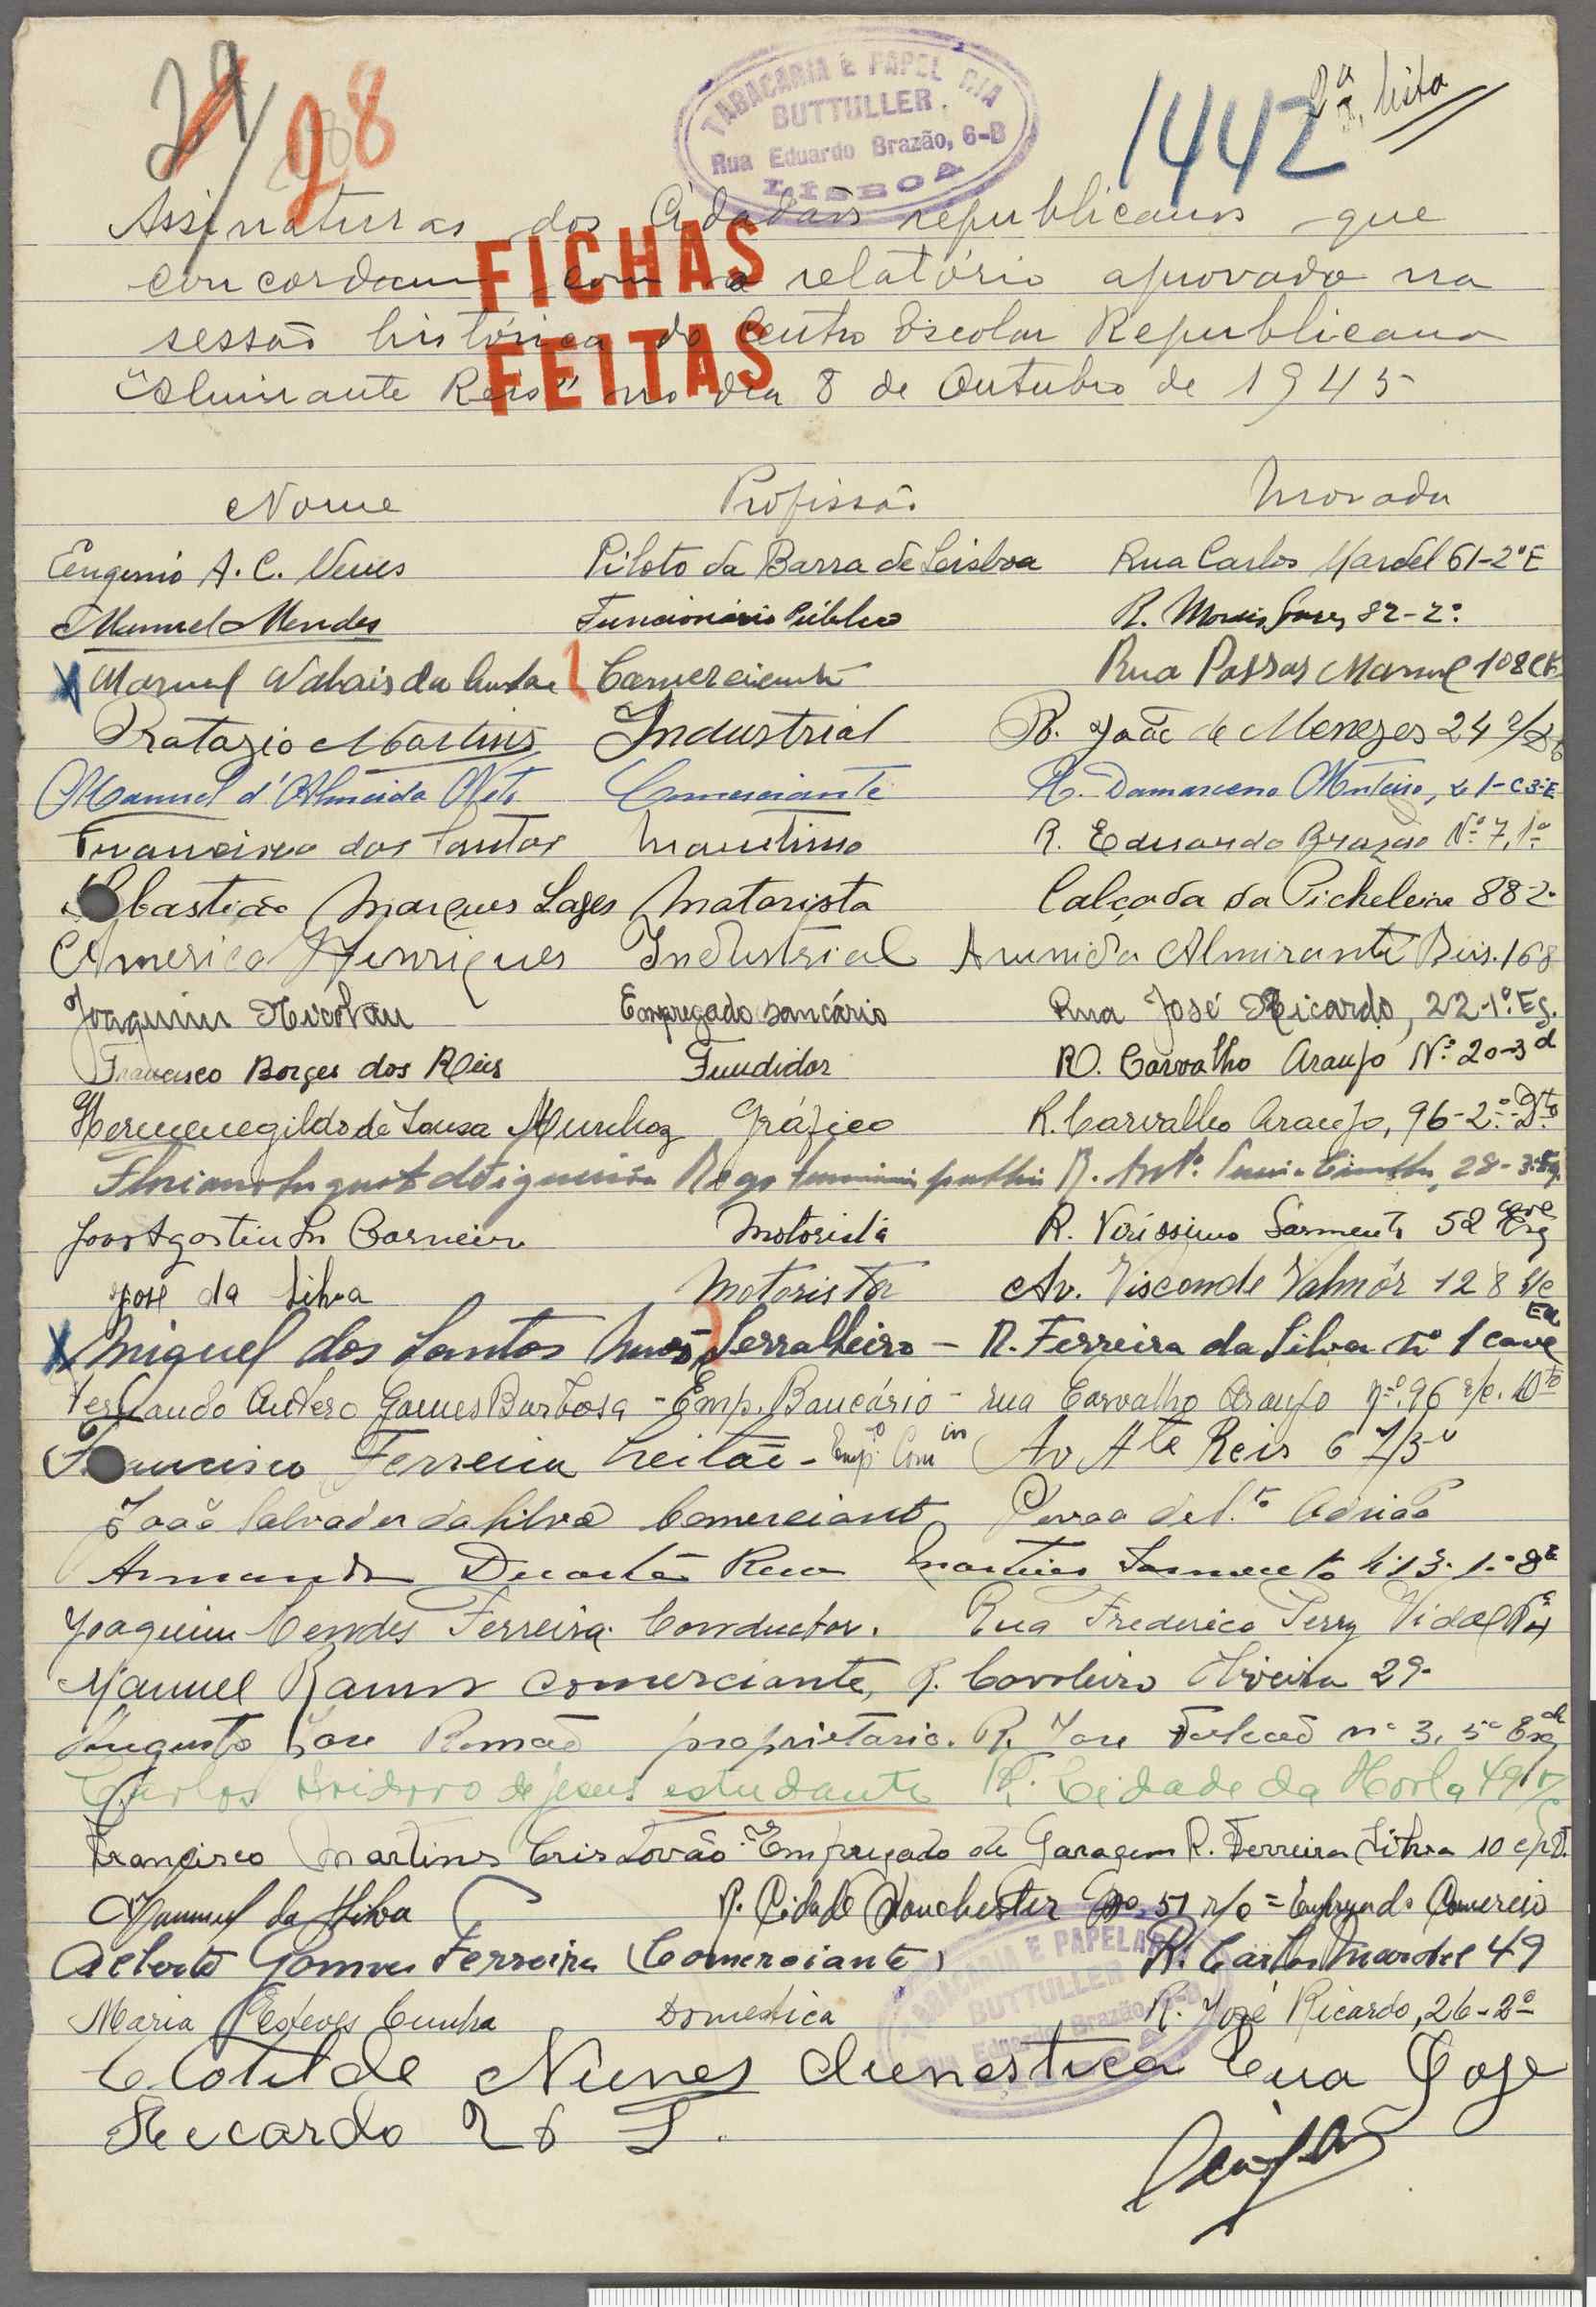 29
28
TABACARIA E PAPEL RIA
BUTTULLER.
Rua Eduardo Brazão, 6-B
LISBOA
1442
2ª lista
Assinaturas dos Cidadãos républicanos que
concordam com o relatório aprovado na
sessão histórica do Centro Escolar Republicano
"Almirante Reis" no dia 8 de Outubro de 1945
FICHAS
FEITAS
Nome Profissão Morada
Eugenio A. C. Neves Piloto da Barra de Lisboa Rua Carlos Mardel 61-2º E
Manuel Mendes Funcionário Público R. Morais Soares 82-2º
Manuel Nabais da Comerciante Rua Passos Manuel 108
Pratazio Martins Industrial R. João de Menezes 24
Manuel d'Almeida Neto Comerciante R. Damasceno Monteiro,
Francisco dos Santos Maritimo R. Eduardo Brazão Nº 7, 1º
Sebastião Marques Lages Motorista Calçada da Picheleira 88 2º
Americo Henriques Industrial Avenida Almirante Reis. 168
Joaquim Nicolau Empregado bancário Rua José Ricardo, 22-1º Eq.
Francisco Borges dos Reis Fundidor R. Carvalho Araujo Nº 20-3 d
Hermenegildo de Sousa Munhoz Gráfico R. Carvalho Araujo, 96-2º Dto
Rego R. Antº 28-3º Esq.
João Agostinho Carneiro Motorista R. Verissimo Sarmento 52 cave Esq
José da Silva Motorista Av. Visconde Valmôr 128 r/c
Miguel dos Santos Serralheiro - R. Ferreira da Silva nº 1 cave Eq
Fernando Antero Gomes Barbosa - Emp. Bancário - rua Carvalho Araujo nº 96 r/c. Dto
Francisco Ferreira Leitão - Empº Com Av Ate Reis 67/3º
João Salvador da Silva Comerciante Adrião
Armando Duarte Rua Martins Sarmento
Joaquim Mendes Ferreira. Conductor. Rua Frederico Perry Vidal
Manuel Ramos comerciante, R. Cavaleiro Oliveira 29-
Augusto Jose Romão proprietario. R. Jose Falcão nº 3, 5º Esq
Carlos Isidoro de Jesus estudante R. Cidade da Horta 49
Francisco Martins Cristovão. Empregado de Garagem R. Ferreira Silva 10
Manuel da Silva R. Cidade Manchester Nº 51 r/c = Comercio
Alberto Gomes Ferreira (Comerciante) R. Carlos Mardel 49
Maria Esteves Cunha Domestica R. José Ricardo, 26-2º
Clotilde Nunes dunestica Rua Jose
Recardo 26
TABACARIA E PAPELARIA
BUTTULLER
Rua Eduardo Brazão 6-B